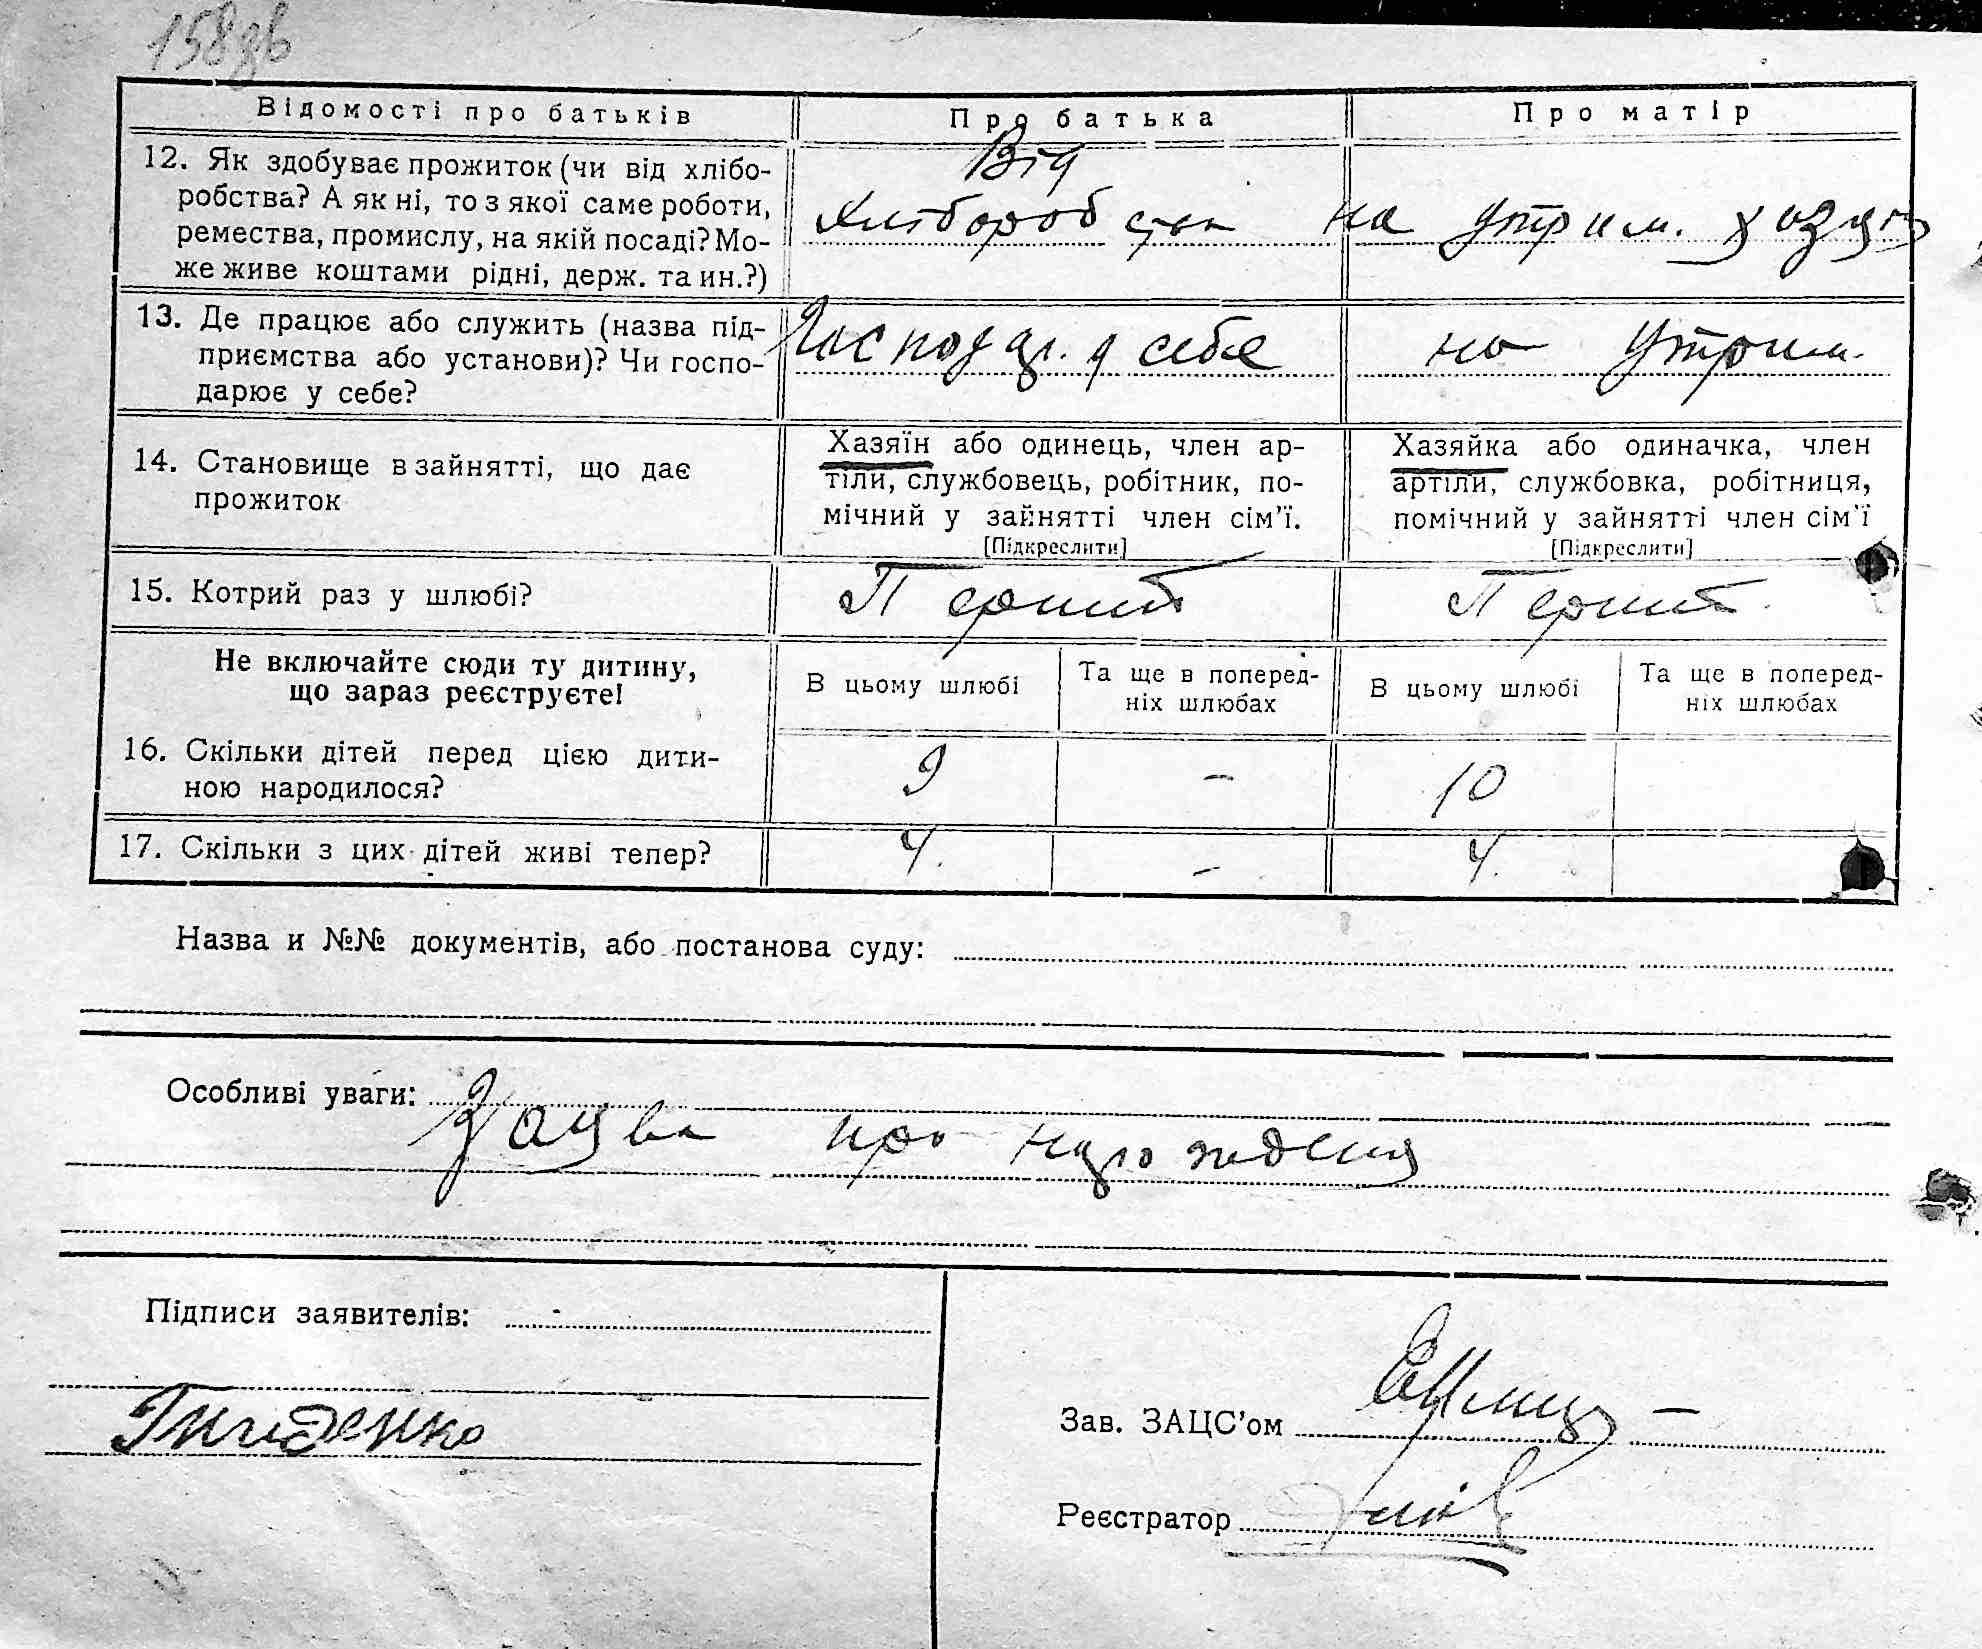 158зв
Відомості про батьків
Про батька
Про матір
12. Як здобуває прожиток (чи від хлібо-
робства? А як ні, то з якої саме роботи,
ремества, промислу, на якій посаді? Мо-
же живе коштами рідні, держ. та ин.?)
Від
Хлібороб ства
на утрим. хазяїн
13. Де працює або служить (назва під-
приємства або установи)? Чи госпо-
дарює у себе?
Господар. у себе
на утрим.
14. Становище в зайнятті, що дає
прожиток
Хазяїн або одинець, член ар-
тіли, службовець, робітник, по-
мічний у зайнятті член сім'ї.
[Підкреслити]
Хазяйка або одиначка, член
артіли, службовка, робітниця,
помічний у зайнятті член сім'ї
[Підкреслити]
15. Котрий раз у шлюбі?
Перший
Перший
Не включайте сюди ту дитину,
що зараз реєструєте!
В цьому шлюбі
Та ще в поперед-
ніх шлюбах
В цьому шлюбі
Та ще в поперед-
ніх шлюбах
16. Скільки дітей перед цією дити-
ною народилося?
9
-
10
17. Скільки з цих дітей живі тепер?
4.
-
4.
Назва и №№ документів, або постанова суду:
Особливі уваги:
Заява про народження
Підписи заявителів:
Зав. ЗАЦС'ом
Реєстратор